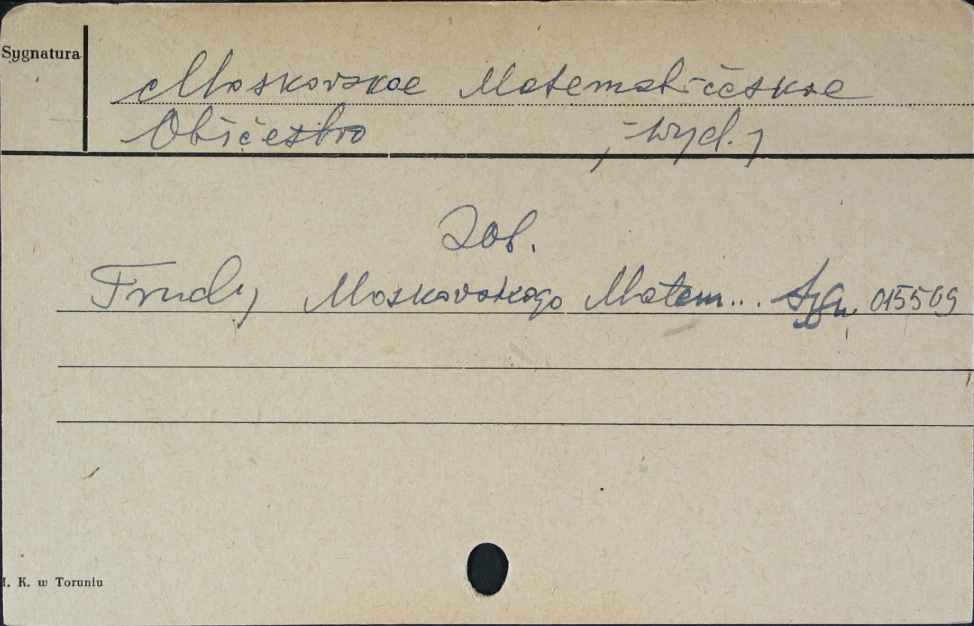 Sygnatura
Moskovskoe Matematičeskoe
Obščestvo, wyd.
Zob.
Trudy Moskovskogo Matem... Sygn. 015509
I. K. w Toruniu